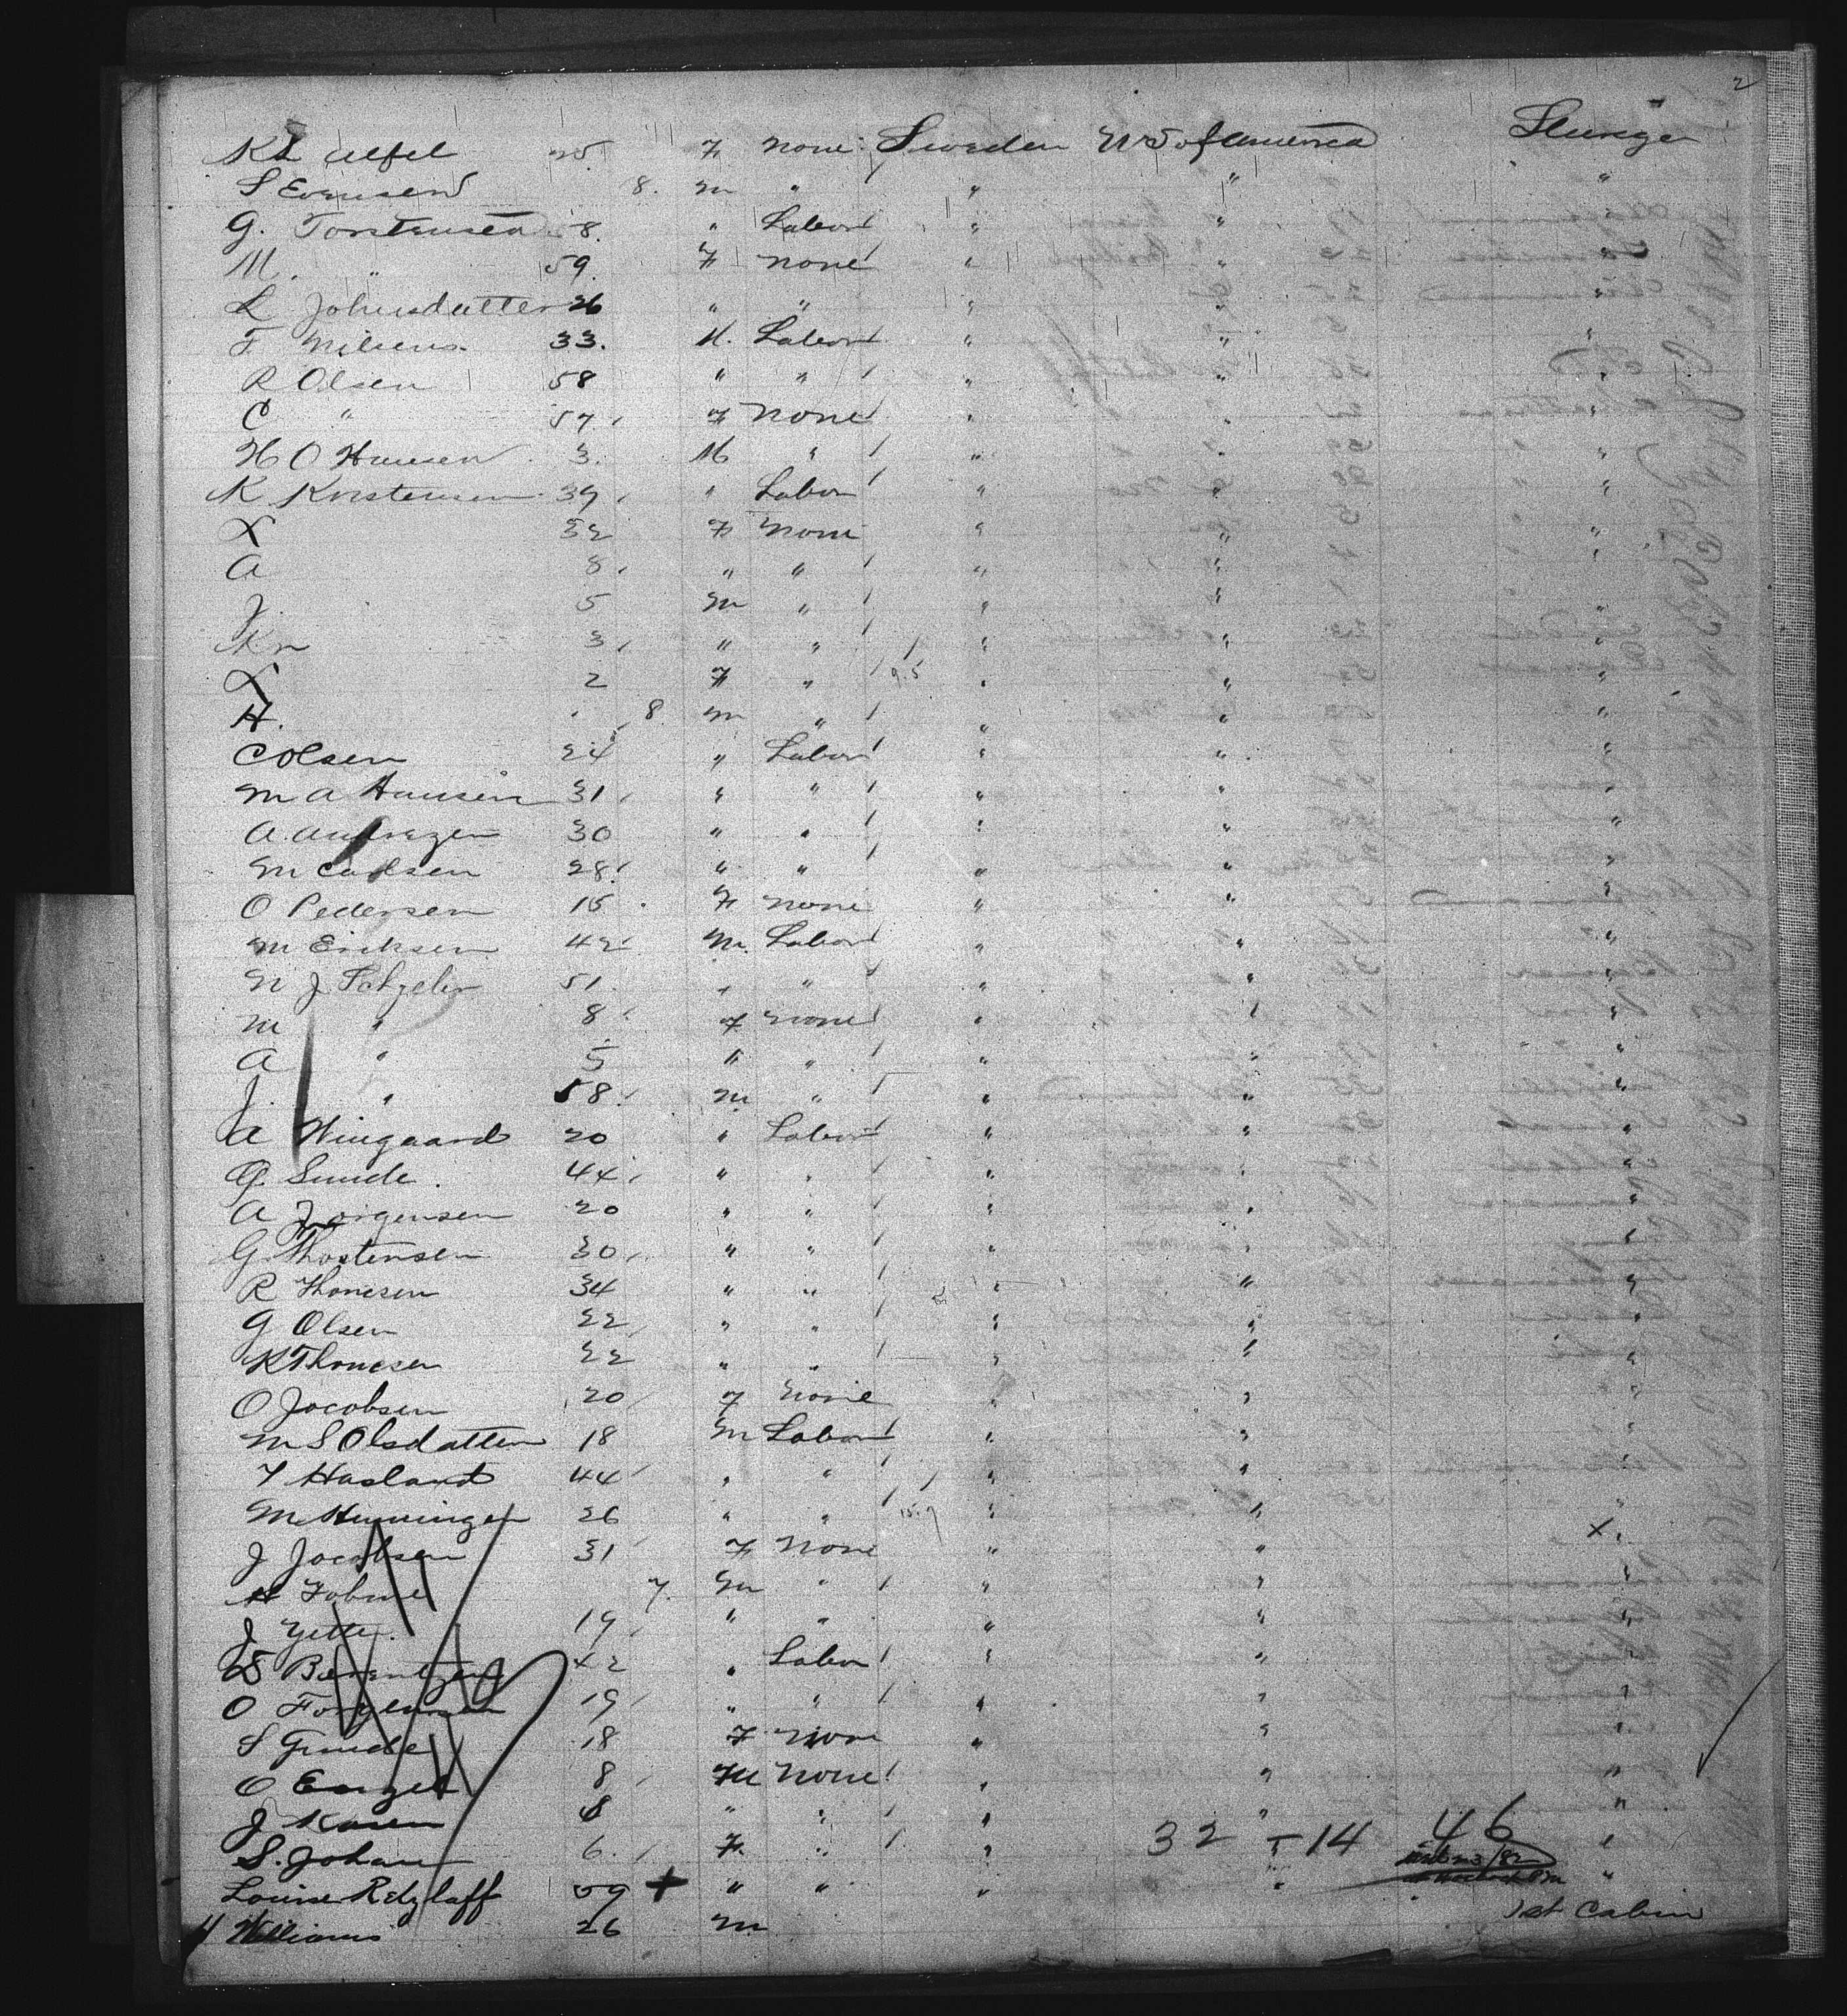 2
K L Ulfel 25 F None Sweden U S of America Steerage
S Evensen 8. m " " " "
G. Torstensen 58. " Labor " " "
M. " 59. F None " " "
L Johnsdatter 26 " " " " "
T. Nilsens 33. M. Labor " " "
R Olsen 58 " " " " "
C " 57 F None " " "
H O Hansen 3. M " " " "
K Kristensen 39 " Labor " " "
L 32 F None " " "
A 8 " " " " "
J. 5 m " " " "
Kn 3 " " " " "
L 2 F " 9.5 " " "
H. 8. m " " " "
C Olsen 24 " Labor " " "
M A Hansen 31 " " " " "
A. Andrezen 30 " " " " "
M Carlsen 28 " " " " "
O Pedersen 15 F None " " "
M Eriksen 42 m. Labor " " "
N J 51 " " " " "
M " 8 F None " " "
A " 5 " " " " "
J. " 58 m " " " "
A Wingaard 20 " Labor " " "
G. Sunde. 44 " " " " "
A Jorgensen 20 " " " " "
G Thostensen 30 " " " " "
R Thomesen 34 " " " " "
G Olsen 22 " " " " "
K Thomesen 22 " " " " "
O Jacobsen 20 F None " " "
M S Olsdatter 18 m Labor " " "
T Hasland 44 " " " " "
M Henningen 26 " " 15.9 " " "
J Jacobsen 31 F None " " X "
H 7. m " " " "
J 19 " " " " "
B Berentzen 42 " Labor " " "
O 19 " " " " "
S Grude 18 F None " " "
O 8 M None " " "
J Karen 8 " " " " "
S. Johan 6. F. " " " "
32 - 14 46
Louise Retzlaff 59 + " " " " "
H Williams 26 m 1st Cabin